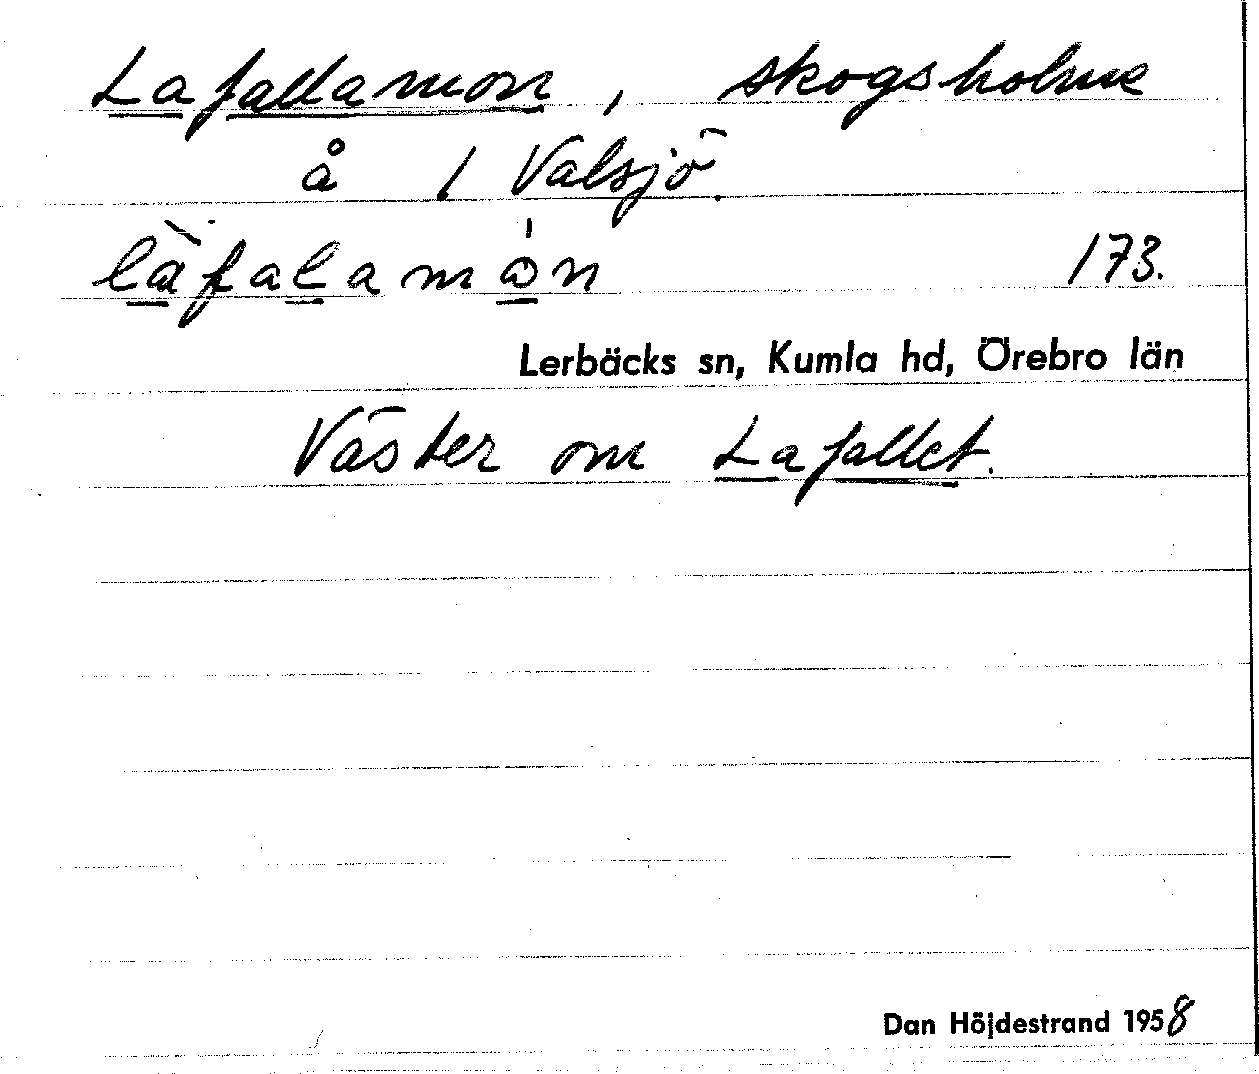 Lafallamon, skogsholme
å 1 Valsjö.
làfalamón 173.
Lerbäcks sn, Kumla hd, Örebro län
Väster om Lafallet.
Dan Höjdestrand 1958